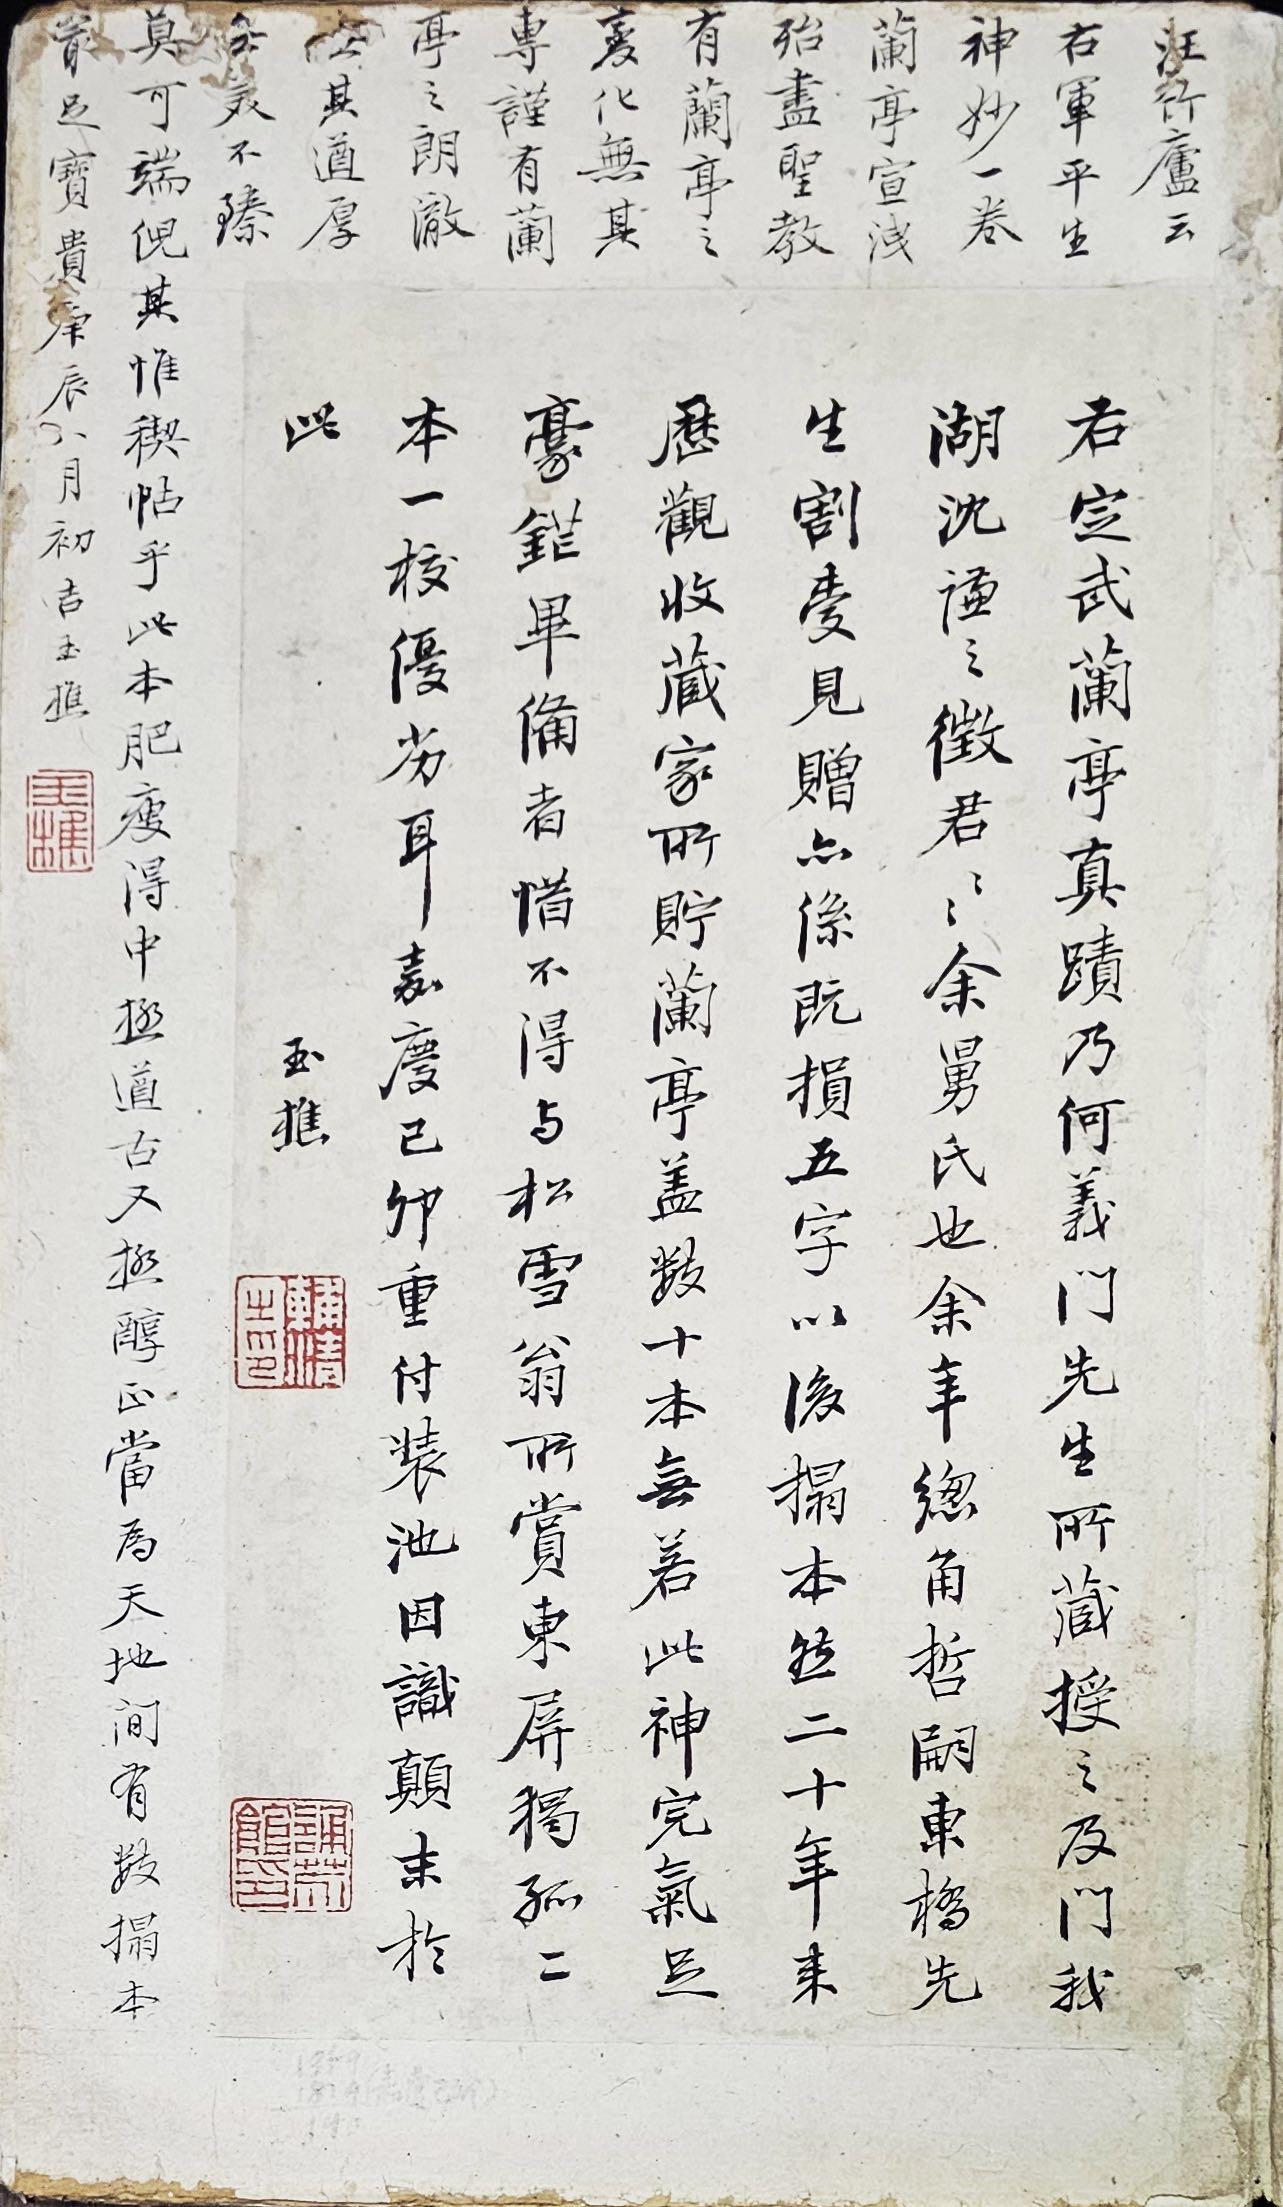 汪竹廬云
右軍平生
神妙一卷
蘭亭宣洩
殆盡聖教
有蘭亭之
變化無其
專謹有蘭
亭之朗澈
其遒厚
美不臻
莫可端倪其惟禊帖乎此本肥瘦得中極遒古又極醇正當為天地間有數搨本
足寶貴庚辰八月初吉玉樵
玉樵
右定武蘭亭真蹟乃何義門先生所藏授之及門我
湖沈謙之徵君〻〻余舅氏也余年總角哲嗣東橋先
生割愛見贈亦係既損五字以後搨本然二十年來
歷觀收藏家所貯蘭亭蓋數十本無若此神完氣足
豪鋩畢備者惜不得与松雪翁所賞東屏獨孤二
本一校優劣耳嘉慶己卯重付裝池因識顛末於
此
玉樵
之印
館印